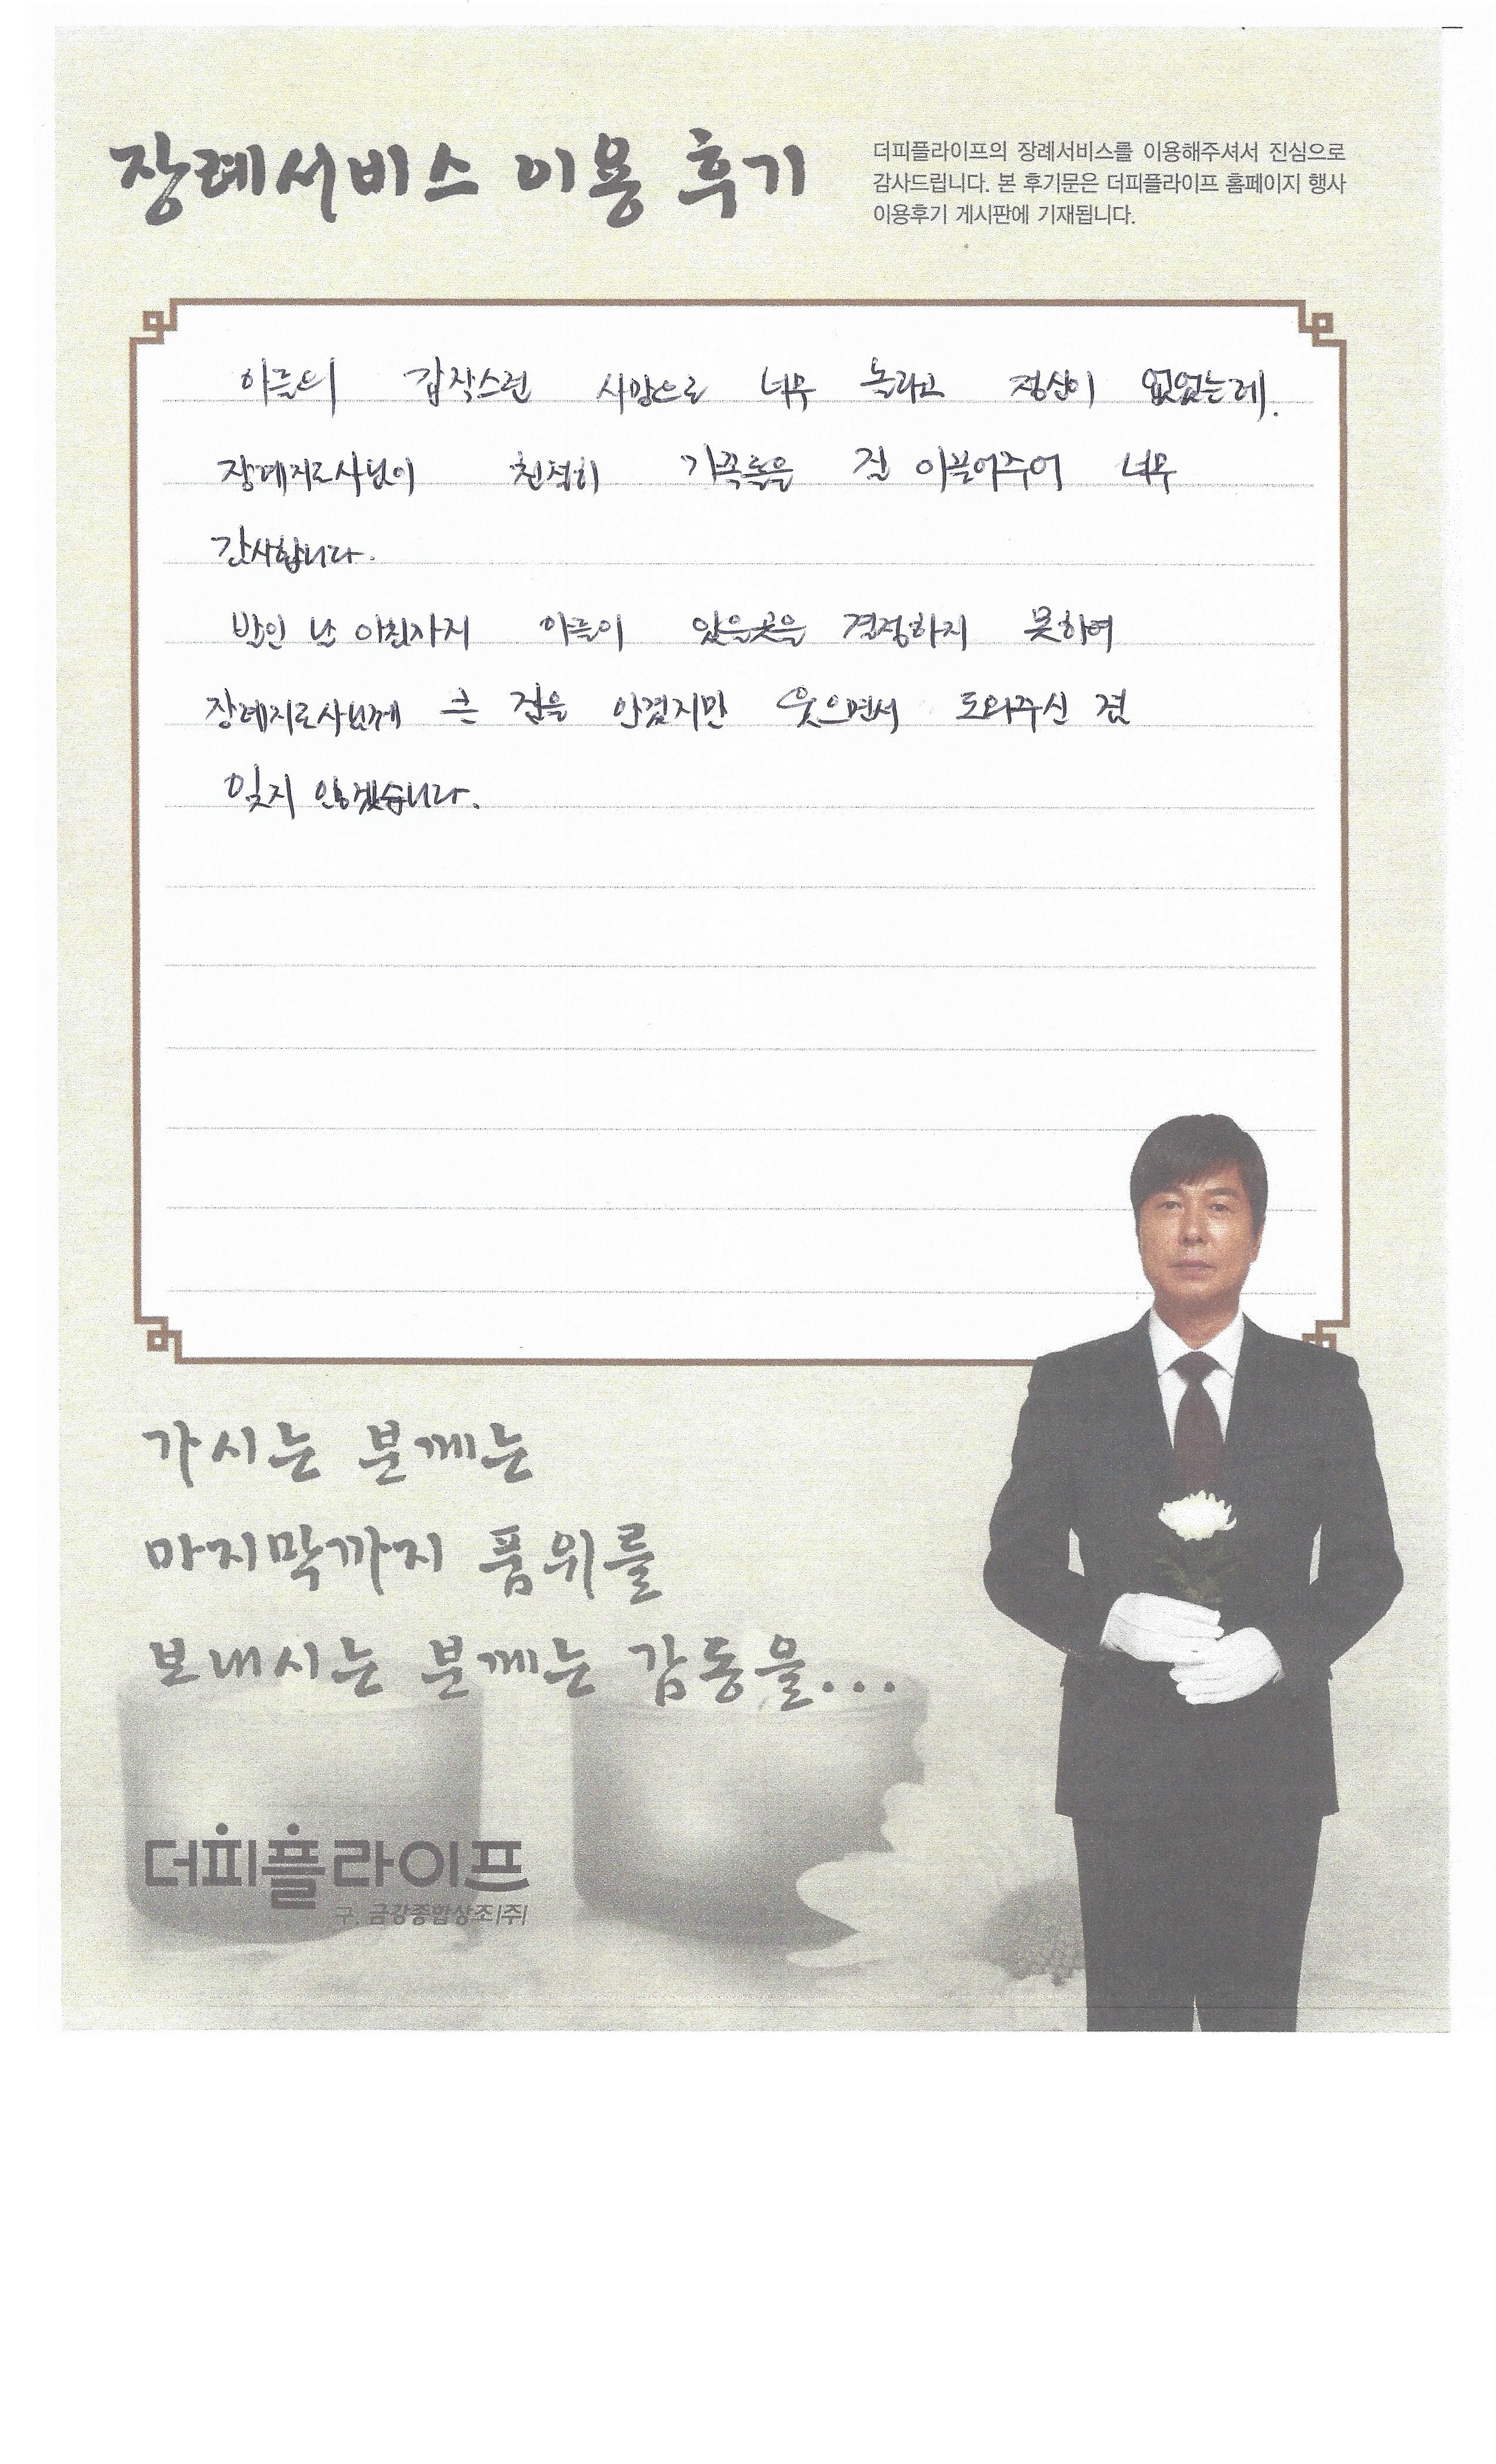 장례서비스 이용 후기
더피플라이프의 장례서비스를 이용해주셔서 진심으로
감사드립니다. 본 후기문은 더피플라이프 홈페이지 행사
이용후기 게시판에 기재됩니다.
아들의 갑작스런 사망으로 너무 놀라고 정신이 없었는데.
장례지도사님이 친절히 가족들을 잘 이끌어주어 너무
감사합니다.
발인 날 아침까지 아들이 있을곳을 결정하지 못하여
장례지도사님께 큰 짐을 안겼지만 웃으면서 도와주신 것
잊지 않겠습니다.
가시는 분께는
마지막까지 품위를
보내시는 분께는 감동을...
더피플라이프
구. 금강종합상조(주)